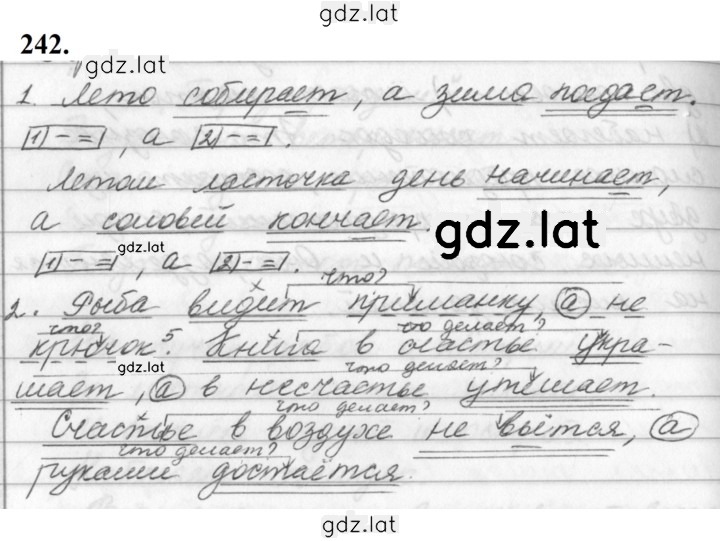 gdz.lat
242.
gdz.lat
1. Лето собирает, а зима поедает.
[1 – =], а [2 – =].
Летом ласточка день начинает,
а соловей кончает.
gdz.lat
gdz.lat
[1 – =], а [2 – =].
что?
2. Рыба видит приманку, а не
что? что делает?
крючок⁵. Книга в счастье укра-
gdz.lat что делает?
шает, а в несчастье утешает.
что делает?
Счастье в воздухе не вьётся, а
что делает?
руками достаётся.
gdz.lat